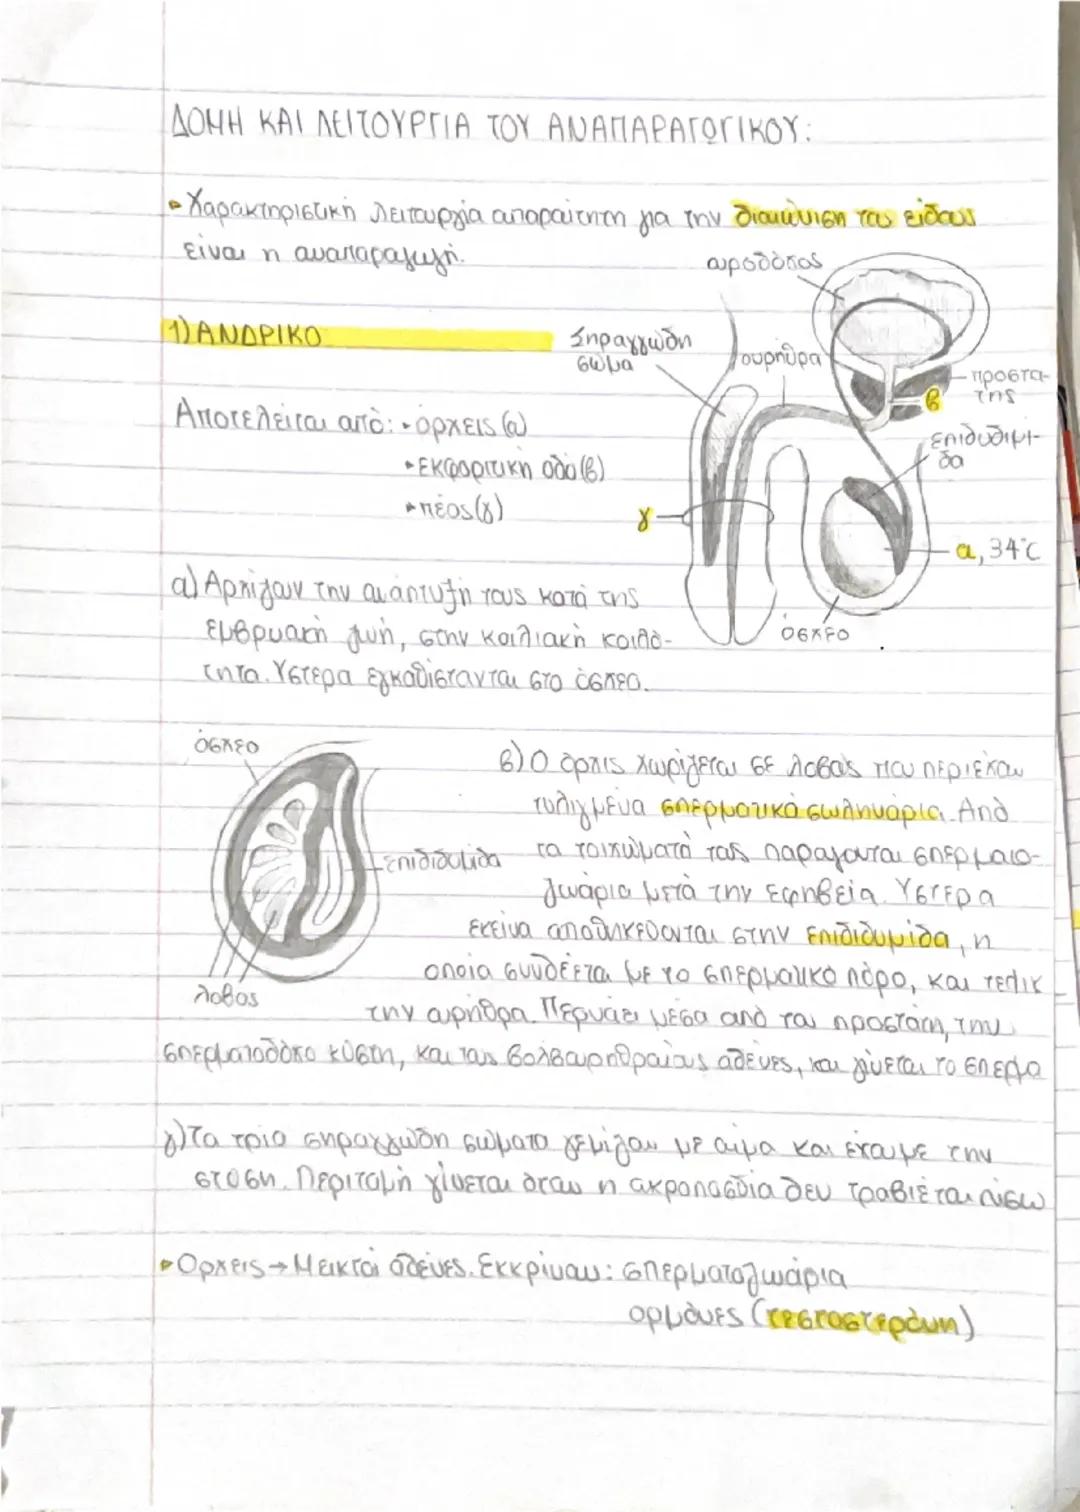 ΔΟΜΗ ΚΑΙ ΛΕΙΤΟΥΡΓΙΑ ΤΟΥ ΑΝΑΠΑΡΑΓΩΓΙΚΟΥ:
Χαρακτηριστική λειτουργία απαραίτητη για την διαιώνιση του είδους
είναι η αναπαραγωγή.
ουροδόχος
1) ΑΝΔΡΙΚΟ
Σηραγγώδη
σώμα
ουρήθρα
προστά-
της
β
Αποτελείται από: • όρχεις (α)
επιδιδυμί-
δα
• εκφορητική οδό (β)
• πέος (γ)
γ
α, 34°C
α) Αρχίζουν την ανάπτυξή τους κατά της
εμβρυακή ζωή, στην κοιλιακή κοιλό-
τητα. Ύστερα εγκαθίστανται στο όσχεο.
όσχεο
όσχεο
β) Ο όρχις χωρίζεται σε λοβούς που περιέχουν
τυλιγμένα σπερματικά σωληνάρια. Από
τα τοιχώματά τους παράγονται σπερματο-
ζωάρια μετά την εφηβεία. Ύστερα
επιδιδυμίδα
εκείνα αποθηκεύονται στην επιδιδυμίδα, η
οποία συνδέεται με το σπερματικό πόρο, και τελικ
λοβοί
την ουρήθρα. Περνάει μέσα από τον προστάτη, την
σπερματοδόχο κύστη, και τους βολβουρηθραίους αδένες, και γίνεται το σπέρμα
γ) Τα τρία σηραγγώδη σώματα γεμίζουν με αίμα και έχουμε την
στύση. Περιτομή γίνεται όταν η ακροποσθία δεν τραβιέται πίσω
Όρχεις → Μεικτοί αδένες. Εκκρίνουν: σπερματοζωάρια
ορμόνες (τεστοστερόνη)